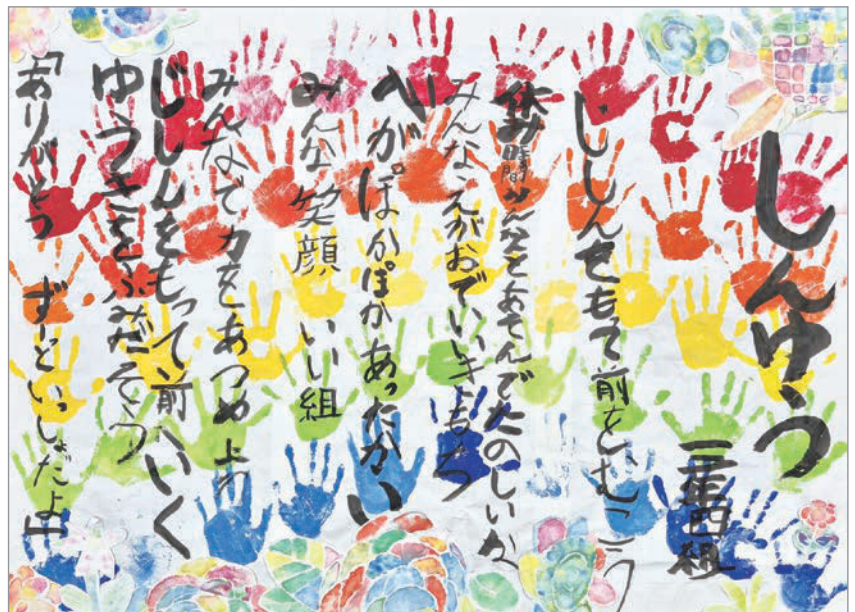 しんゆう
三年四組
じしんをもて前をむこう
休み時間みんなとあそんでたのしいな
みんなえがおでいいきもち
心がぽかぽかあったかい
みんな笑顔 いい組
みんなで力をあつめよう
じしんをもって、前へいく
ゆうきをふみだそう
「ありがとう ずーといっしょだよ」